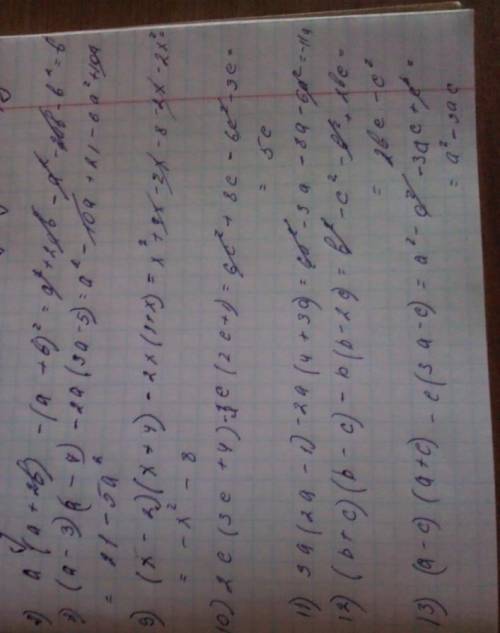 2) a (a + 2b) - (a + b)² = a² + 2ab - a² - 2ab - b² = b
(a - 3)(a - 7) - 2a (3a - 5) = a² - 10a + 21 - 6a² + 10a
= 21 - 5a²
9) (x - 2)(x + 4) - 2x (1 + x) = x² + 4x - 2x - 8 - 2x - 2x²
= - x² - 8
10) 2c (3c + 4) - 3c (2c + 1) = 6c² + 8c - 6c² - 3c =
= 5c
11) 3a (2a - 1) - 2a (4 + 3a) = 6a² - 3a - 8a - 6a² = -11a
12) (b + c)(b - c) - b (b - 2c) = b² - c² - b² + 2bc =
= 2bc - c²
13) (a - c)(a + c) - c (3a - c) = a² - c² - 3ac + c² =
= a² - 3ac